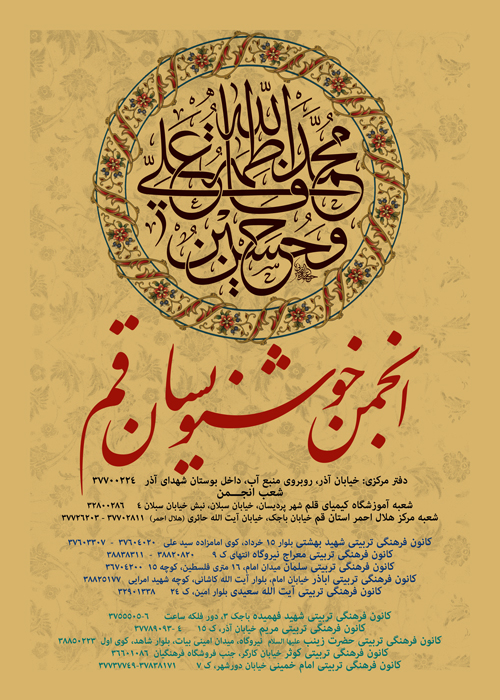 الله محمد فاطمة علي
و حسن حسین
انجمن خوشنویسان قم
دفتر مرکزی: خیابان آذر، روبروی منبع آب، داخل بوستان شهدای آذر ۳۷۷۰۰۲۲۴
شعب انجمن
شعبه آموزشگاه کیمیای قلم شهر پردیسان، خیابان سبلان، نبش خیابان سبلان ۴ ۳۲۸۰۰۲۸۶
شعبه مرکز هلال احمر استان قم خیابان باجک، خیابان آیت الله حائری (هلال احمر) ۳۷۷۰۲۸۱۱ - ۳۷۷۲۶۲۰۳
کانون فرهنگی تربیتی شهید بهشتی بلوار ۱۵ خرداد، کوی امامزاده سید علی ۳۷۶۰۴۰۲۰ - ۳۷۶۰۳۳۰۷
کانون فرهنگی تربیتی معراج نیروگاه انتهای ک ۹ ۳۸۸۲۰۸۲۰ - ۳۸۸۳۸۳۱۱
کانون فرهنگی تربیتی سلمان میدان امام، ۱۶ متری فلسطین، کوچه ۱۵ ۳۶۷۰۴۲۰۰
کانون فرهنگی تربیتی اباذر خیابان امام، بلوار آیت الله کاشانی، کوچه شهید امرایی ۳۸۸۲۵۱۷۷
کانون فرهنگی تربیتی آیت الله سعیدی بلوار امین، ک ۲۴ ۳۲۹۰۱۳۳۸
کانون فرهنگی تربیتی شهید فهمیده باجک ۳، دور فلکه ساعت ۳۷۵۵۵۰۵-۶
کانون فرهنگی تربیتی مریم خیابان آذر، ک ۱۵ ۳۷۷۸۹۰۹۳-۴
کانون فرهنگی تربیتی حضرت زینب علیها السلام نیروگاه، میدان امینی بیات، بلوار شاهد، کوی اول ۳۸۸۵۰۲۲۳
کانون فرهنگی تربیتی کوثر خیابان کارگر، جنب فروشگاه فرهنگیان ۳۶۶۰۱۰۸۶
کانون فرهنگی تربیتی امام خمینی خیابان دورشهر، ک ۷ ۳۷۸۳۸۱۷۱-۳۷۷۳۷۷۴۹